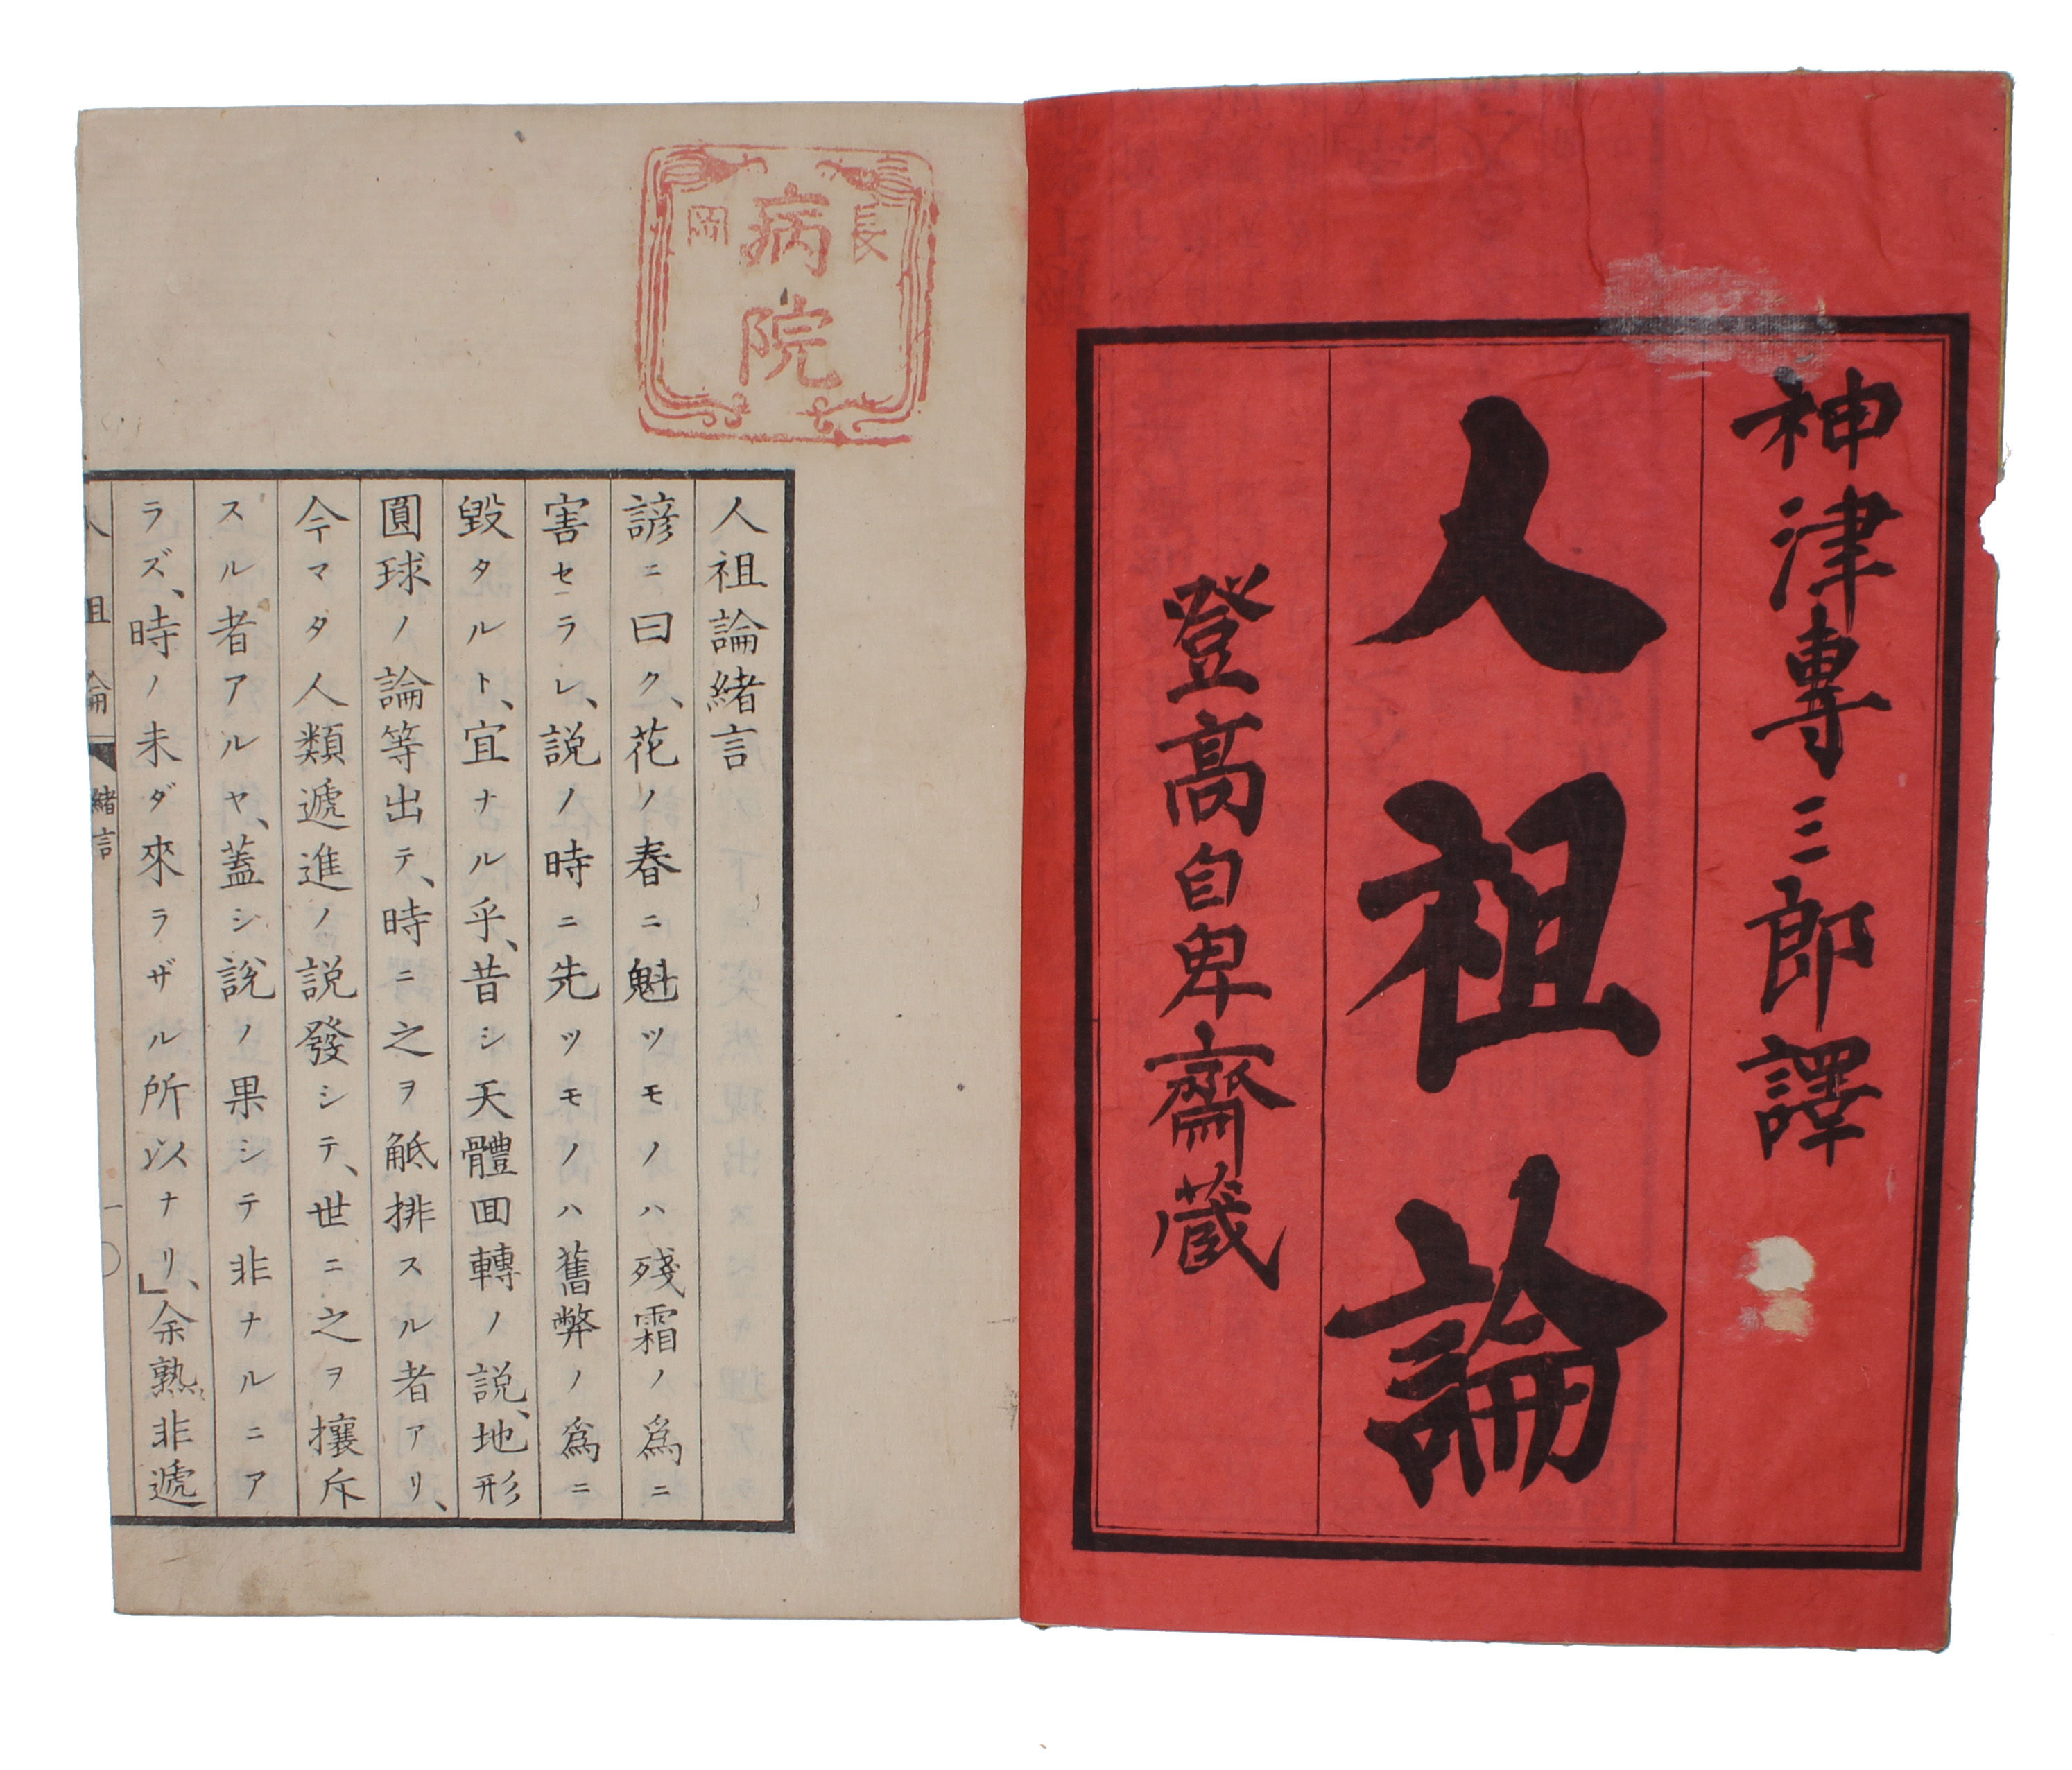 神津專三郎譯
人祖論
登高自卑齋蔵
長岡
病院
人祖論緒言
諺ニ曰ク、花ノ春ニ魁ツモノハ殘霜ノ爲ニ
害セラレ、説ノ時ニ先ツモノハ舊弊ノ爲ニ
毀タルト、宜ナル乎、昔シ天體囬轉ノ説、地形
圓球ノ論等出テ、時ニ之ヲ觝排スル者アリ、
今マタ人類遞進ノ説發シテ、世ニ之ヲ攘斥
スル者アルヤ、蓋シ説ノ果シテ非ナルニア
ラズ、時ノ未ダ來ラザル所以ナリ、」余熟非遞
人祖論 緒言 一